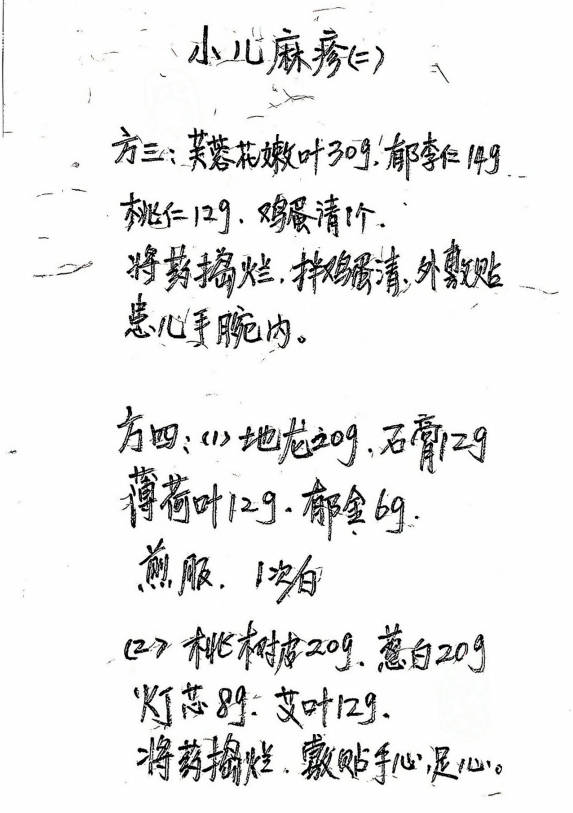 小儿麻疹(二)
方三:芙蓉花嫩叶30g.郁李仁14g
桃仁12g.鸡蛋清1个.
将药捣烂.拌鸡蛋清,外敷贴
患儿手腕内。
方四:(1)地龙20g.石膏12g
薄荷叶12g.郁金6g.
煎服.1次/日
(2)桃树皮20g.葱白20g
灯芯8g.艾叶12g.
将药捣烂.敷贴手心,足心。